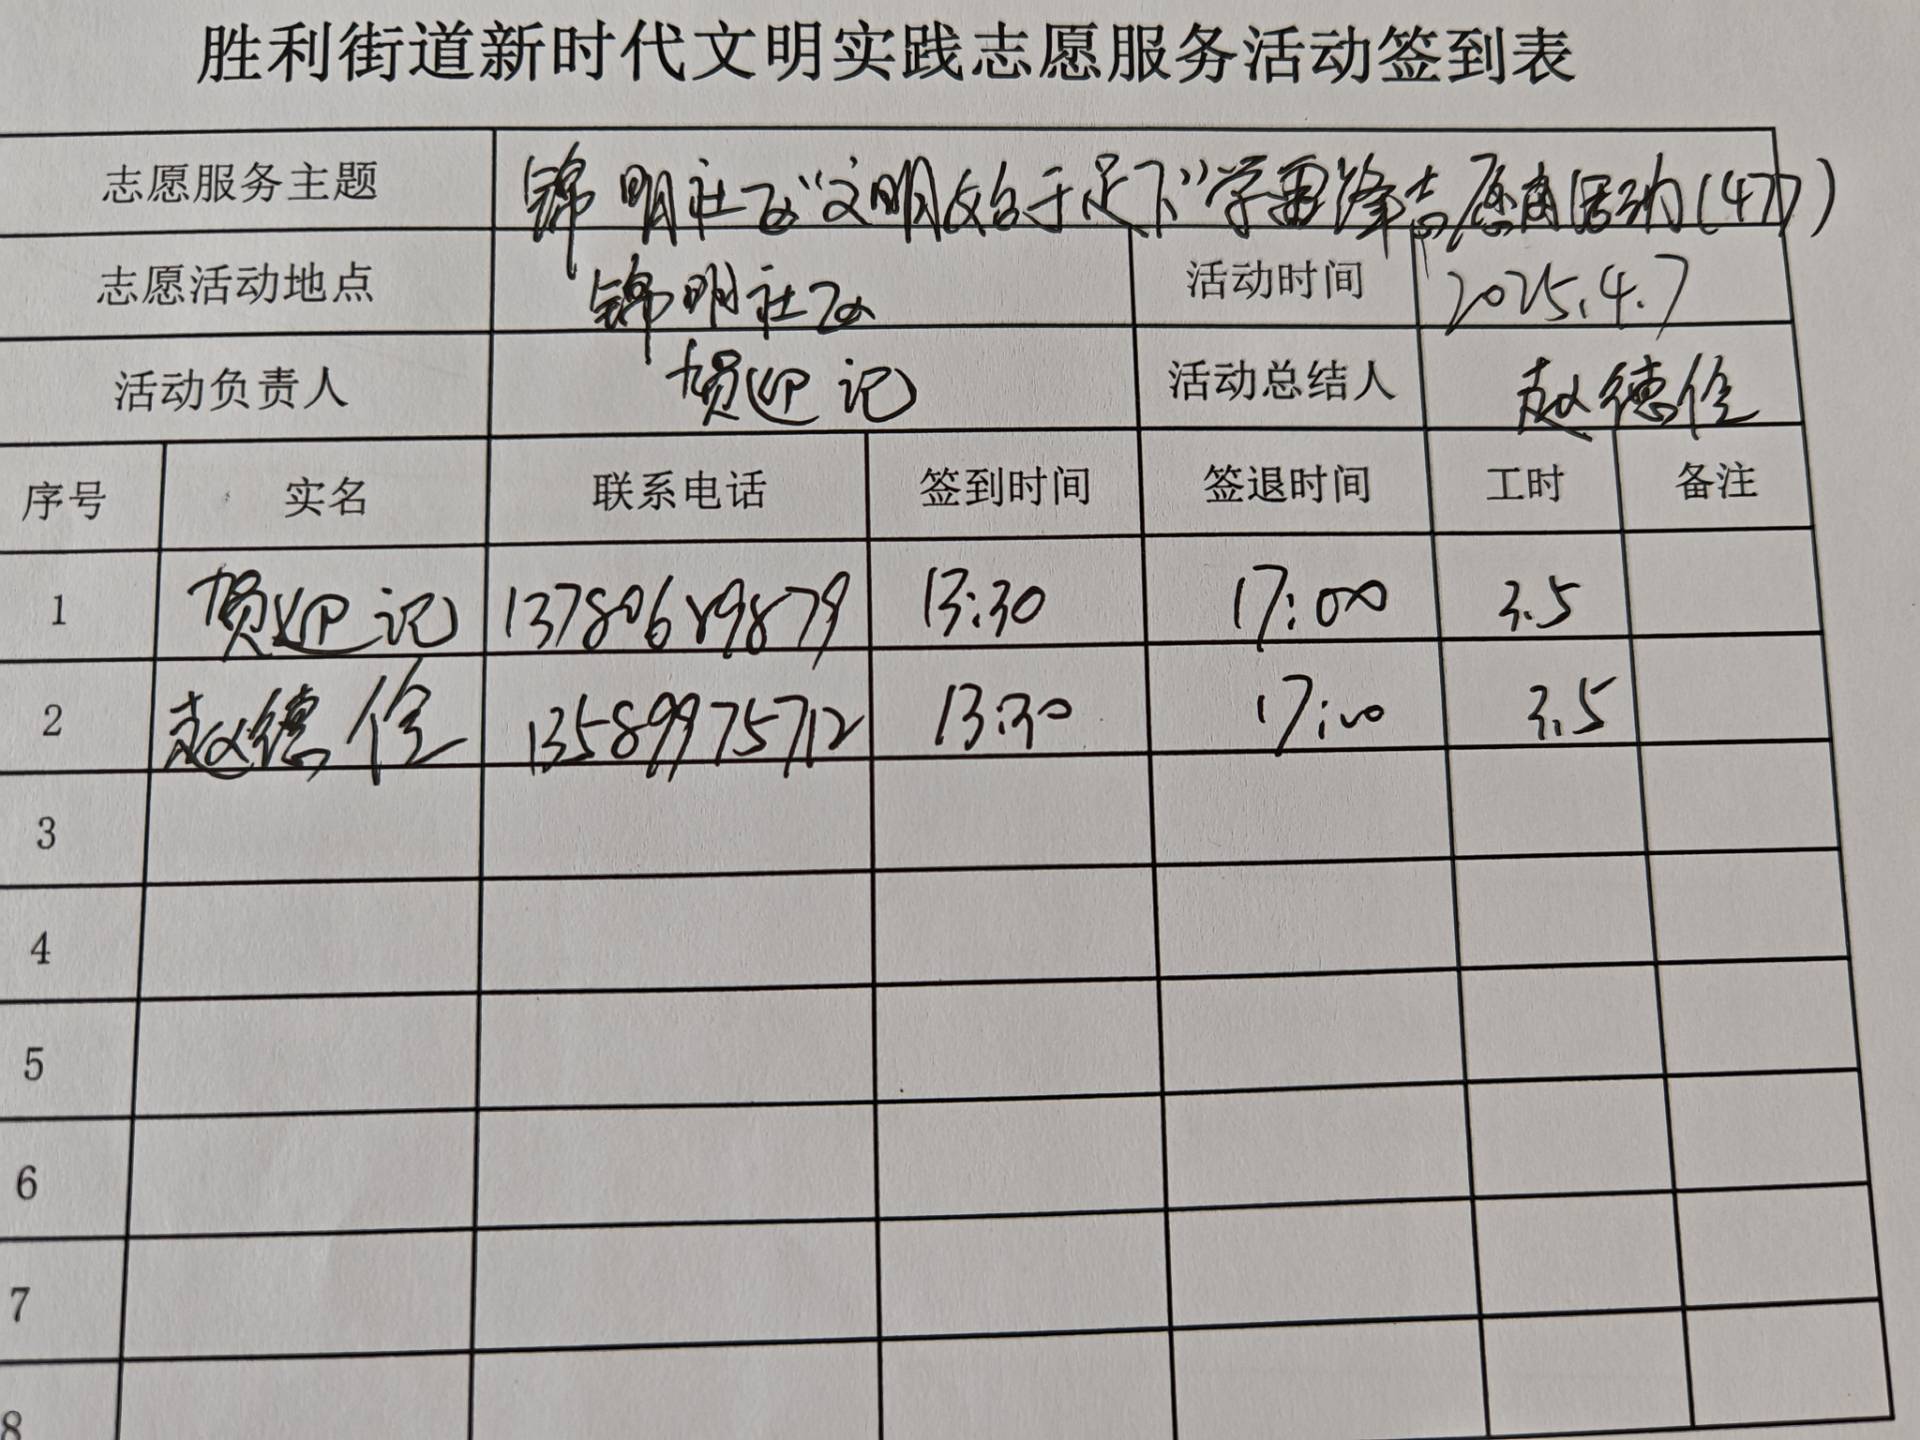 胜利街道新时代文明实践志愿服务活动签到表
志愿服务主题 锦明社区“文明始于足下”学雷锋志愿活动(477)
志愿活动地点 锦明社区 活动时间 2025.4.7
活动负责人 贺迎记 活动总结人 赵德佺
序号 实名 联系电话 签到时间 签退时间 工时 备注
1 贺迎记 13780689879 13:30 17:00 3.5
2 赵德佺 13589975712 13:30 17:00 3.5
3
4
5
6
7
8